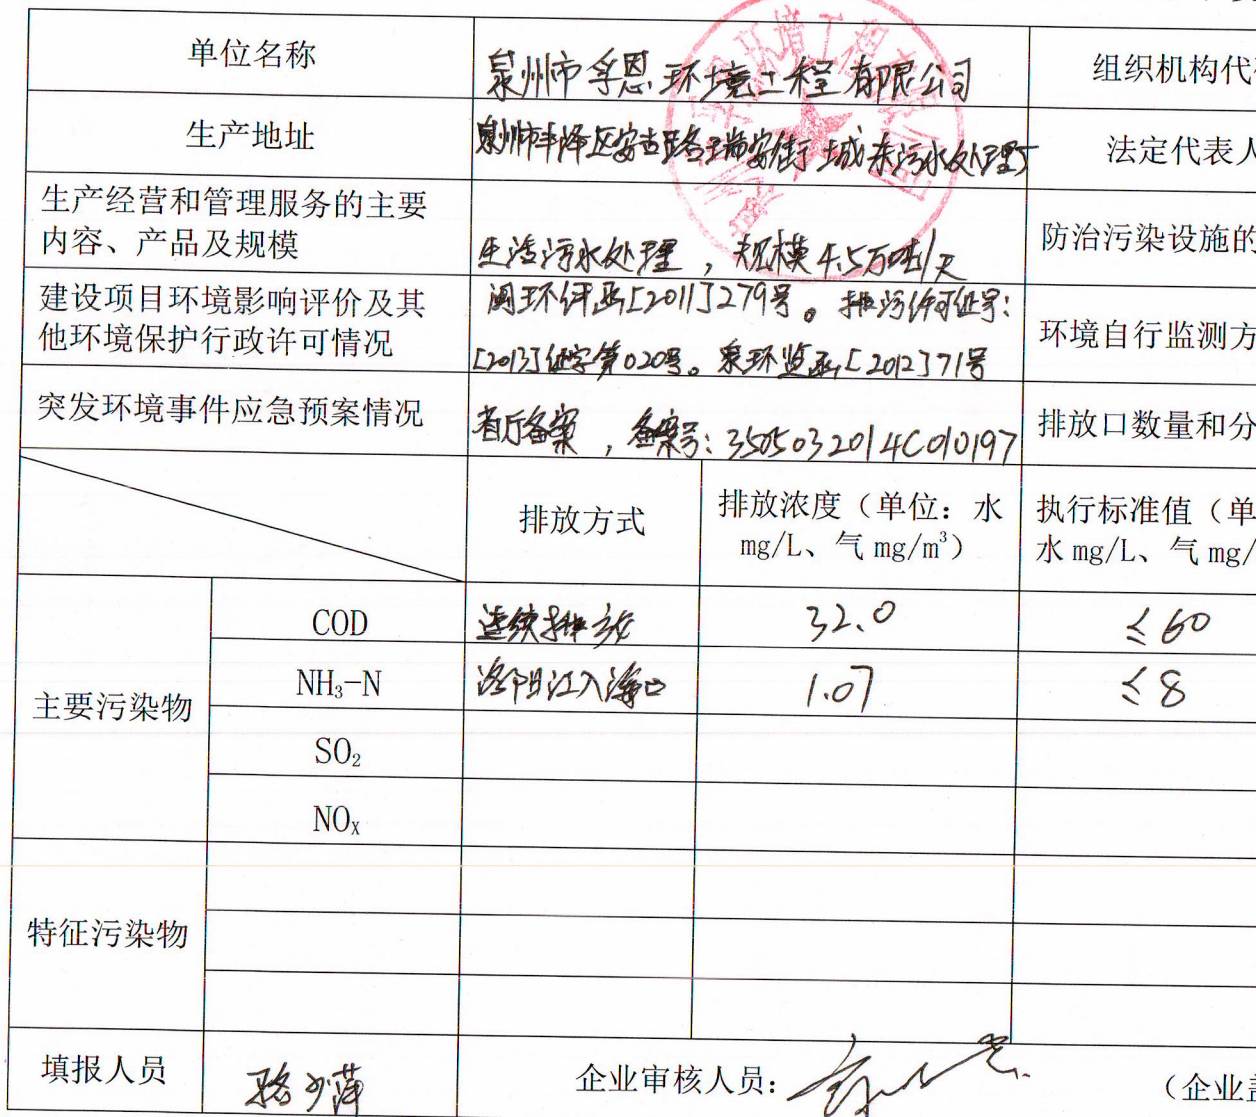 单位名称
泉州市孚恩环境工程有限公司
组织机构代
生产地址
泉州市丰泽区安吉路瑞安街城东污水处理厂
法定代表人
生产经营和管理服务的主要
内容、产品及规模
生活污水处理，规模4.5万吨/天
防治污染设施的
建设项目环境影响评价及其
他环境保护行政许可情况
闽环评函[2011]279号。排污许可证号:
[2013]证字第020号。泉环监函[2012]71号
环境自行监测方
突发环境事件应急预案情况
省厅备案，备案号:3505032014C010197
排放口数量和分
排放方式
排放浓度（单位：水
mg/L、气 mg/m³）
执行标准值（单
水 mg/L、气 mg/
主要污染物
COD
连续排放
32.0
≤60
NH₃-N
洛阳江入海口
1.07
≤8
SO₂
NOₓ
特征污染物
填报人员
骆少萍
企业审核人员：
（企业盖